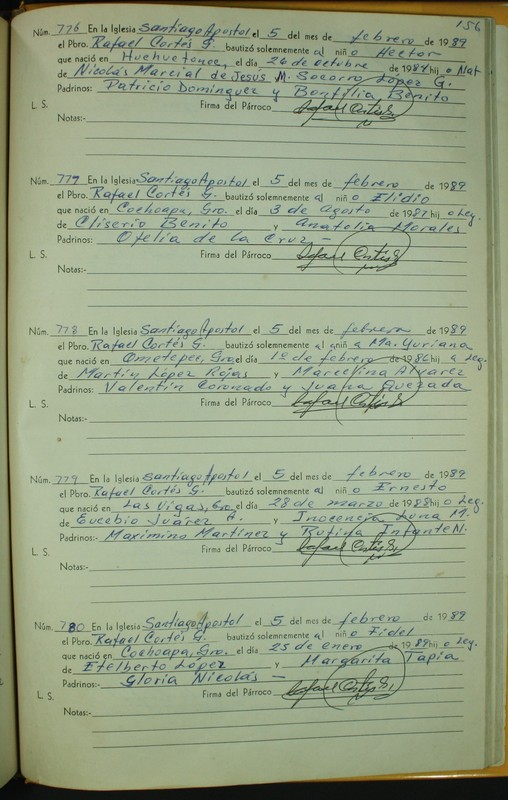 156
Núm. 776 En la Iglesia Santiago Apostol el 5 del mes de febrero de 1989
el Pbro. Rafael Cortés G. bautizó solemnemente al niño Hector
que nació en Huehuetonoc, el día 26 de octubre de 1984 hijo Nat
de Nicolás Marcial de Jesús y M. Socorro López G.
Padrinos: Patricio Dominguez y Bonfilia Benito
L. S. Firma del Párroco
Notas:-
Núm. 777 En la Iglesia Santiago Apostol el 5 del mes de febrero de 1989
el Pbro. Rafael Cortés G. bautizó solemnemente al niño Elidio
que nació en Cochoapa, Gro. el día 3 de agosto de 1987 hijo Leg.
de Cliserio Benito y Anatolia Morales
Padrinos: Ofelia de la Cruz -
L. S. Firma del Párroco
Notas:-
Núm. 778 En la Iglesia Santiago Apostol el 5 del mes de febrero de 1989
el Pbro. Rafael Cortés G. bautizó solemnemente a niña Ma. Yuriana
que nació en Ometepec, Gro. el día 1º de febrero de 1986 hija Leg.
de Martín López Rojas y Marcelina Alvarez
Padrinos: Valentin Coronado y Juana Quezada
L. S. Firma del Párroco
Notas:-
Núm. 779 En la Iglesia Santiago Apostol el 5 del mes de febrero de 1989
el Pbro. Rafael Cortés G. bautizó solemnemente al niño Ernesto
que nació en Las Vigas, Gro. el día 28 de marzo de 1988 hijo Leg.
de Eucebio Juárez A. y Inocencia Luna M.
Padrinos:- Maximino Martínez y Rufina Infante N.
L. S. Firma del Párroco
Notas:-
Núm. 780 En la Iglesia Santiago Apostol el 5 del mes de febrero de 1989
el Pbro. Rafael Cortés G. bautizó solemnemente al niño Fidel
que nació en Cochoapa, Gro. el día 25 de enero de 1989 hijo Leg.
de Etelberto López y Margarita Tapia
Padrinos:- Gloria Nicolás -
L. S. Firma del Párroco
Notas:-